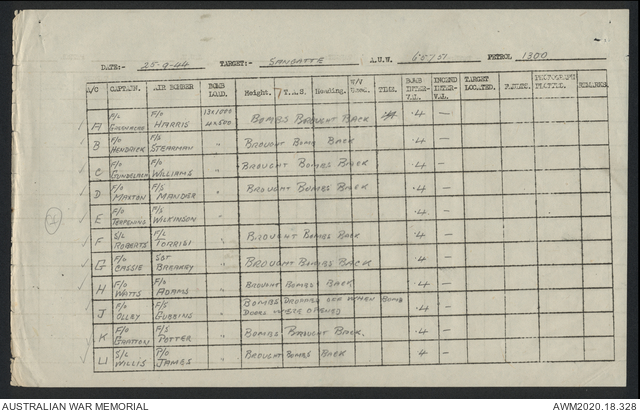 DATE:- 25-9-44 TARGET:- SANGATTE A.U.W. 65751 PETROL 1300
A/C CAPTAIN. AIR BOMBER BOMB LOAD. Height. T.A.S. Heading. W/V Used. TIME. BOMB INTERVAL. INCEND INTERVAL. TARGET LOCATED. PHOTOGRAPH PLOTTED. REMARKS.
A F/O F/O HARRIS 13x1000 4x500 BOMBS BROUGHT BACK .4 —
B F/O HENDRICK F/S STEARMAN " BROUGHT BOMB BACK .4 —
C F/O GUNDELACH F/O WILLIAMS " BROUGHT BOMBS BACK .4 —
D F/O MAXTON F/S MANDER " BROUGHT BOMBS BACK .4 —
E F/O F/S WILKINSON " .4 —
F S/L ROBERTS F/L TORRISI " BROUGHT BOMBS BACK .4 —
G F/O CASSIE SGT " BROUGHT BOMBS BACK .4 —
H F/O WATTS F/O ADAMS " BROUGHT BOMBS BACK .4 —
J F/O OLLEY F/S GUBBINS " BOMBS DROPPED WHEN BOMB DOORS WERE OPENED .4 —
K F/O GRATTON F/S POTTER " BOMBS BROUGHT BACK. .4 —
L1 S/L WILLIS F/O JAMES " BROUGHT BOMBS BACK 4 —
AUSTRALIAN WAR MEMORIAL AWM2020.18.328